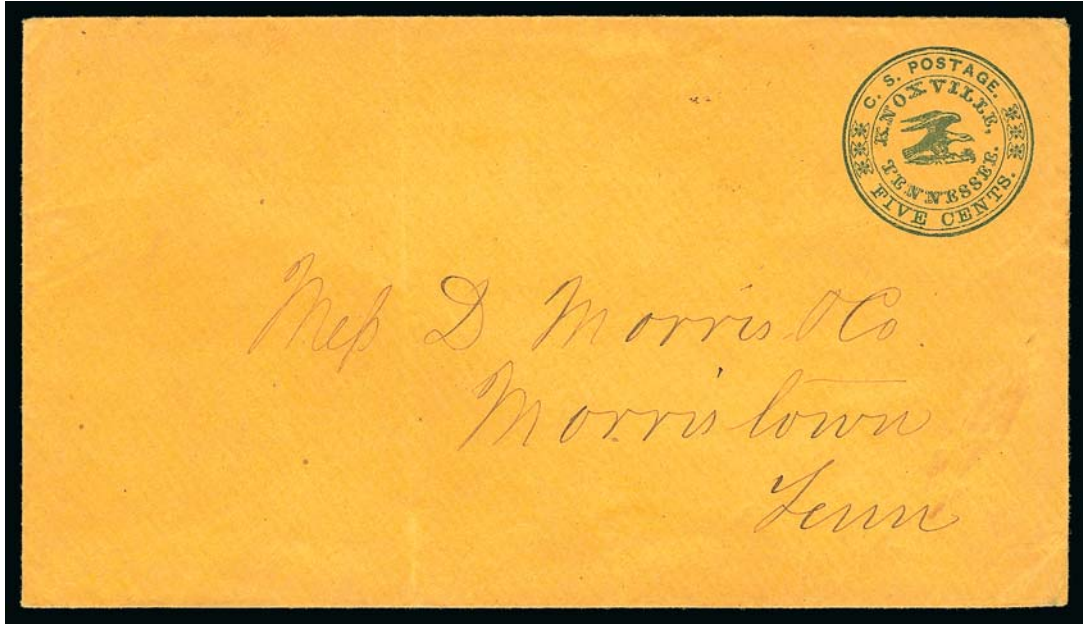 C. S. POSTAGE.
KNOXVILLE,
TENNESSEE.
FIVE CENTS.
Mess D Morris & Co.
Morristown
Tenn